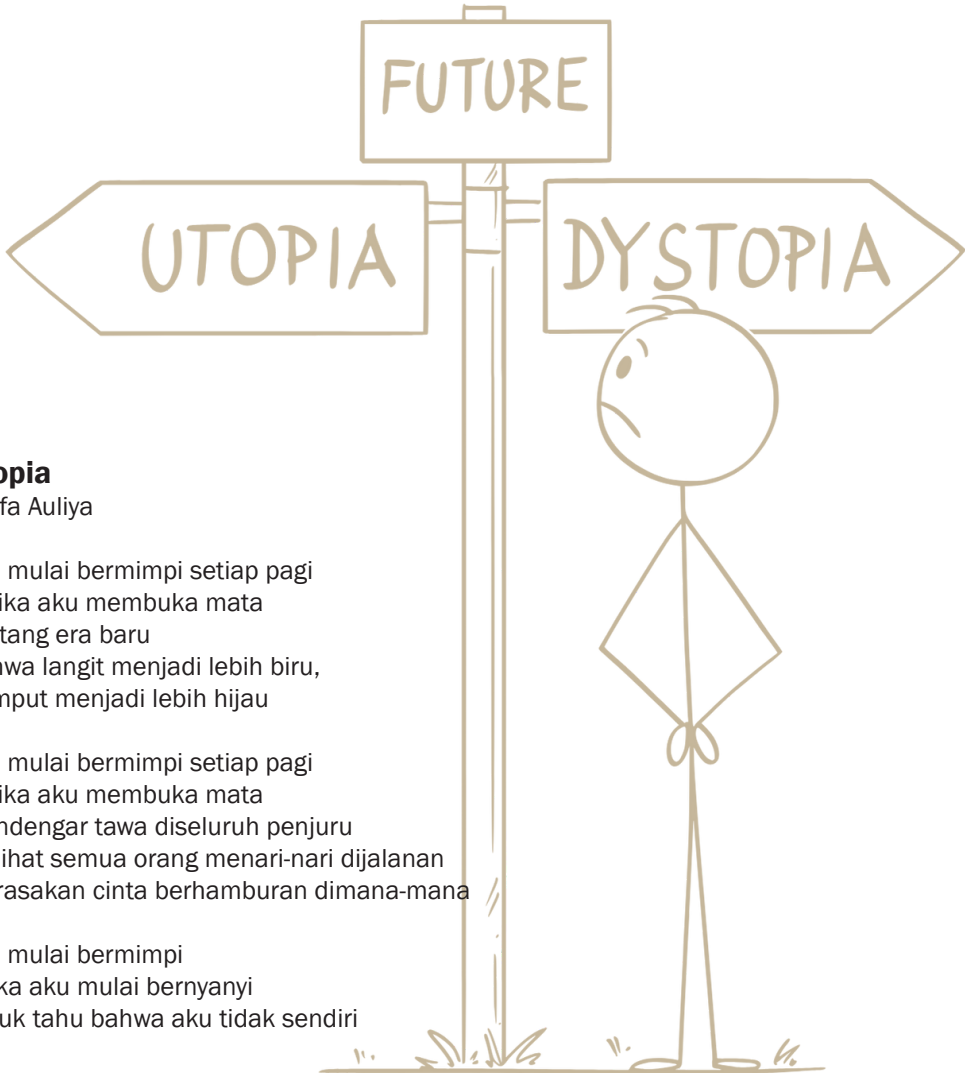 FUTURE
UTOPIA
DYSTOPIA
opia
fa Auliya
mulai bermimpi setiap pagi
ika aku membuka mata
tang era baru
wa langit menjadi lebih biru,
mput menjadi lebih hijau
mulai bermimpi setiap pagi
ika aku membuka mata
ndengar tawa diseluruh penjuru
lihat semua orang menari-nari dijalanan
rasakan cinta berhamburan dimana-mana
mulai bermimpi
ka aku mulai bernyanyi
uk tahu bahwa aku tidak sendiri